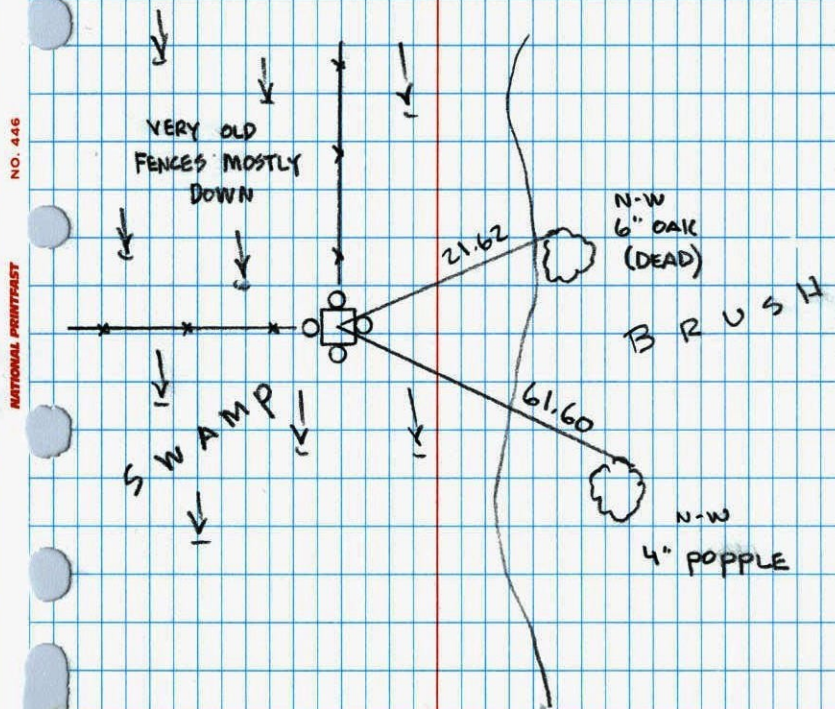 NO. 446
NATIONAL PRINTFAST
VERY OLD
FENCES MOSTLY
DOWN
21.62
N-W
6" OAK
(DEAD)
BRUSH
61.60
SWAMP
N-W
4" POPPLE